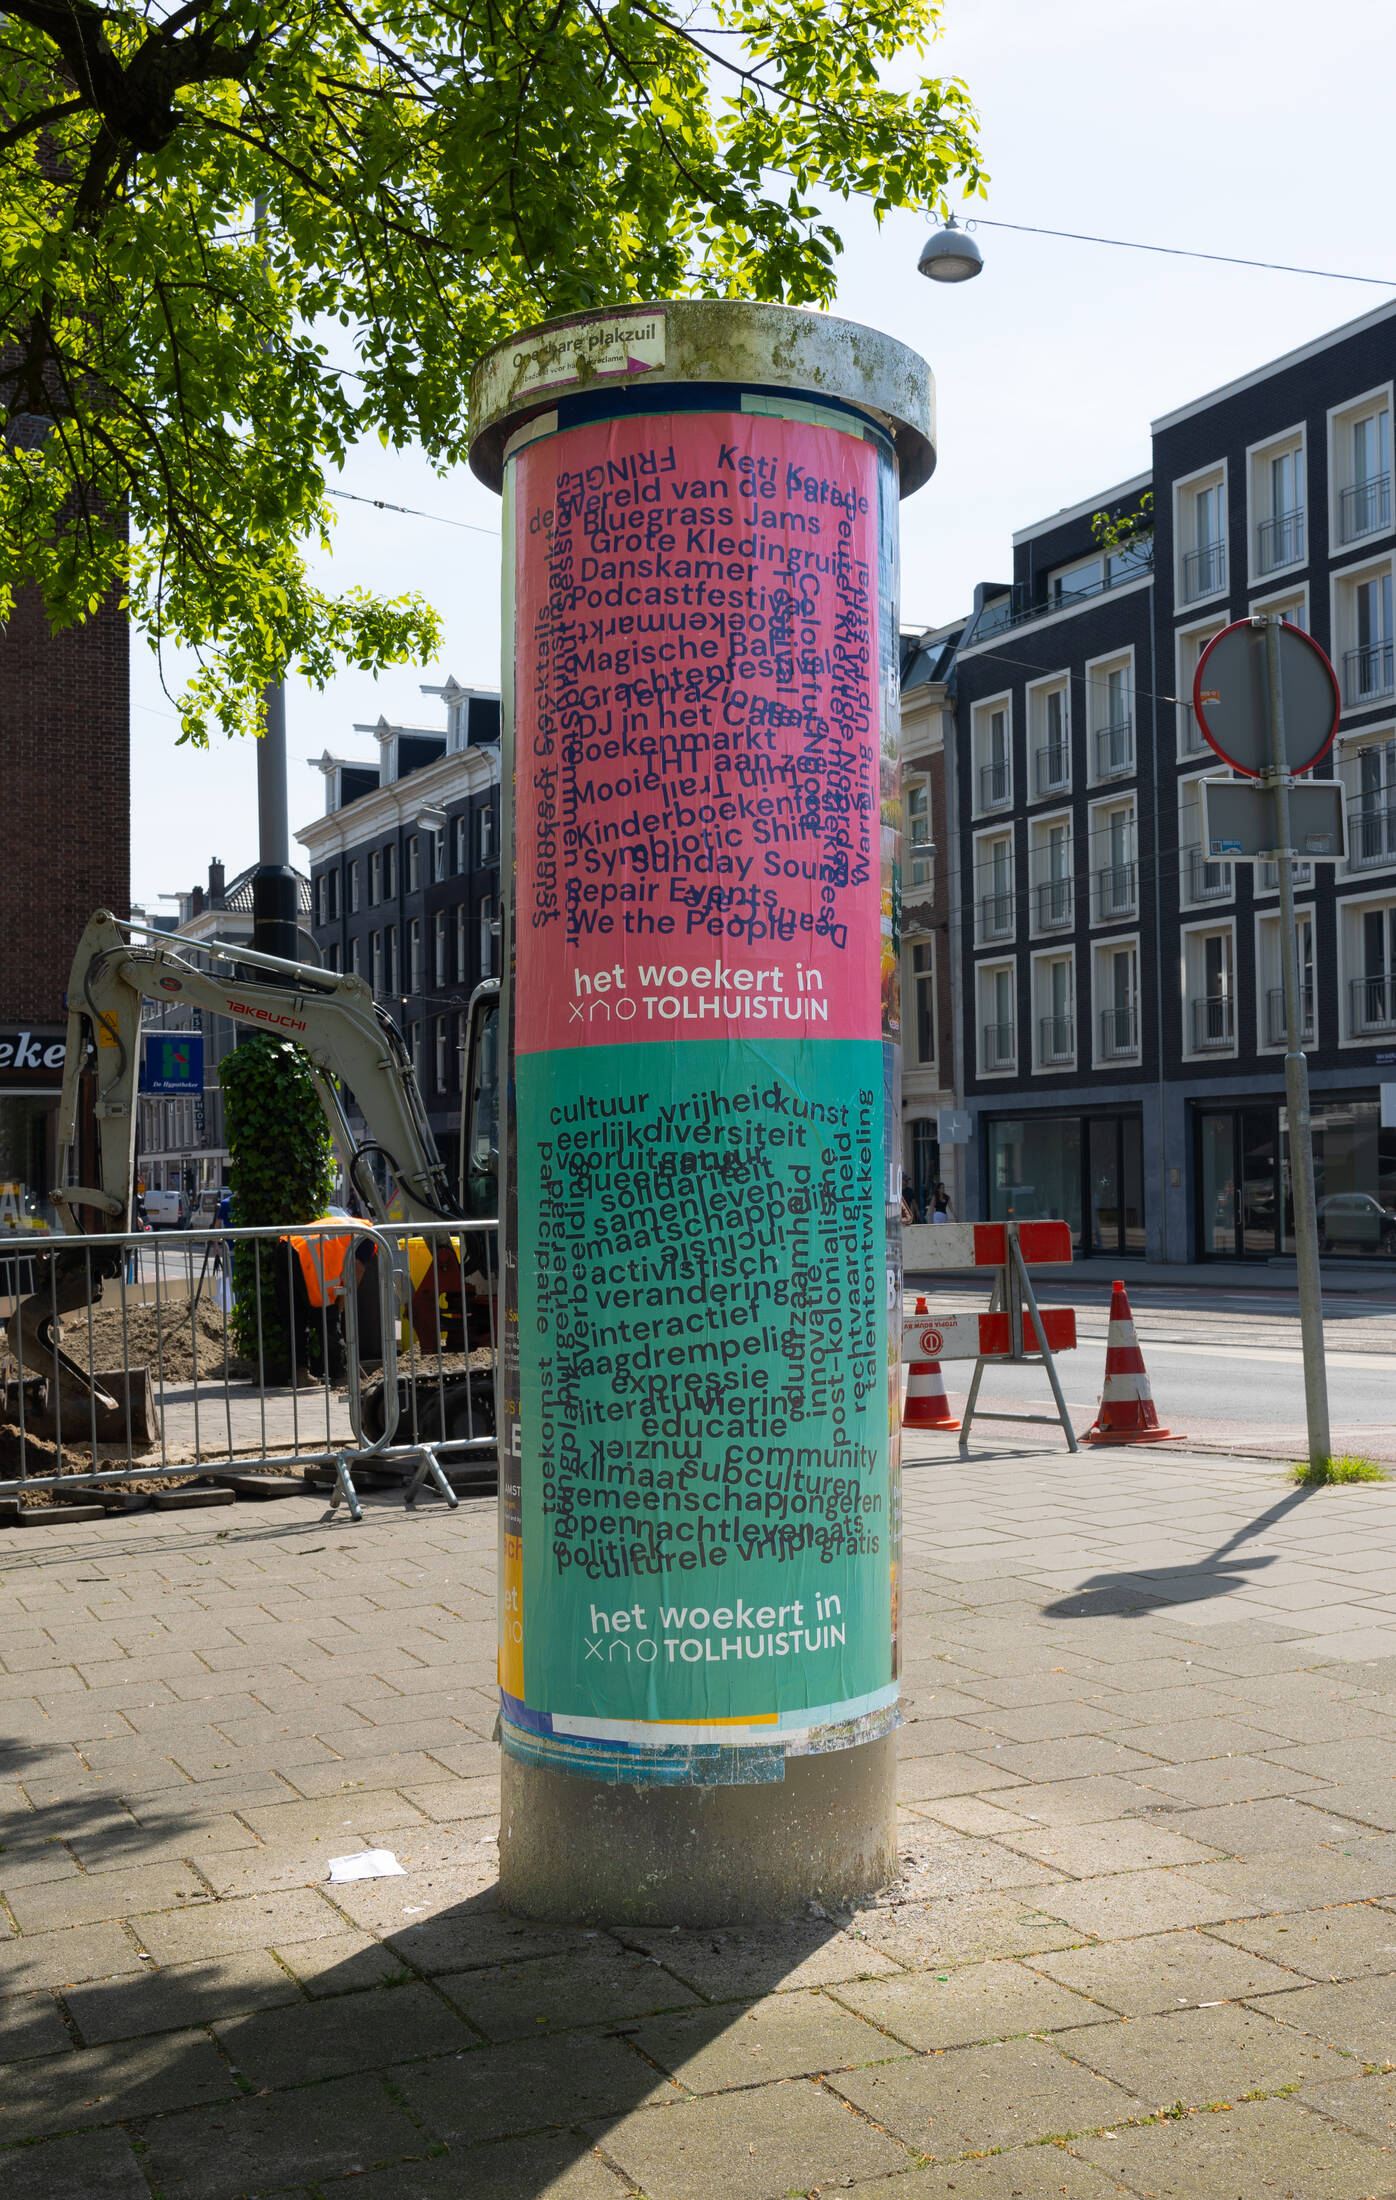 Openbare plakzuil
FRINGE
Keti Koti
de Wereld van de Parade
Bluegrass Jams
Grote Kledingruil
Danskamer
Podcastfestival
Boekenmarkt
Magische Bal
Grachtenfestival
Terra Zionnate
DJ in het Café
Boekenmarkt
THT aan zee
Mooie Tuin Trail
Kinderboekenfestival
Symbiotic Shift
Sunday Sounds
Repair Events
Death Cafe
We the People
Science & Cocktails
Toekomst
Warming Up Festival
het woekert in
TOLHUISTUIN
cultuur
vrijheid
kunst
eerlijk
diversiteit
vooruitgang
natuur
queer
solidariteit
samenleven
maatschappelijk
inclusie
activistisch
verandering
interactief
laagdrempelig
expressie
literatuur
viering
educatie
muziek
community
klimaat
subculturen
gemeenschap
jongeren
open
nachtleven
politiek
culturele vrijplaats
gratis
participatie
toekomst
springplank
burgerberaad
verbeelding
duurzaamheid
innovatie
post-koloniaal
rechtvaardigheid
talentontwikkeling
het woekert in
TOLHUISTUIN
TAKEUCHI
eke
De Hypotheker
UTOPIA BOUW BV